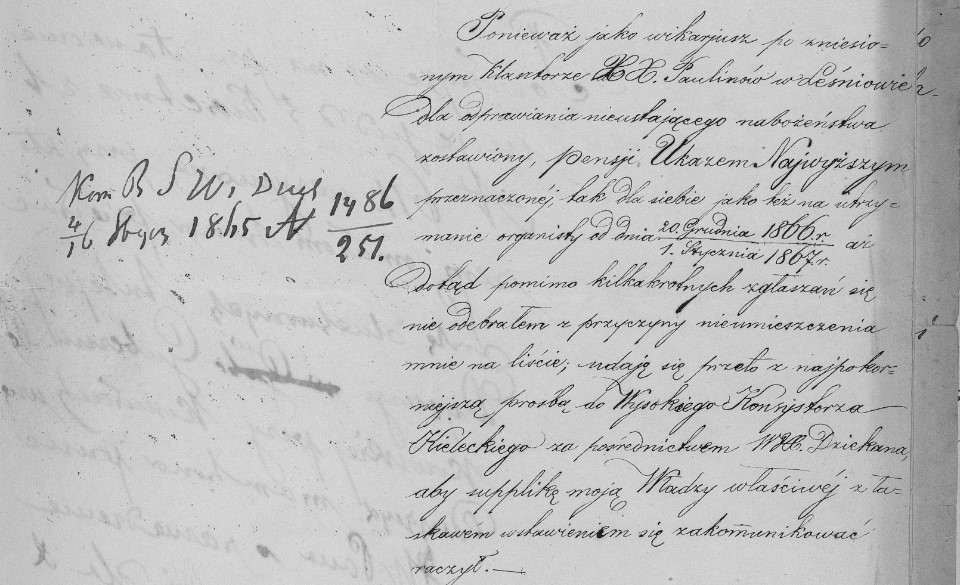 Ponieważ jako wikarjusz po zniesio-
nym klasztorze XX. Paulinów w Leśniowie
dla odprawiania nieustającego nabożeństwa
zostawiony, pensji Ukazem Najwyższym
przeznaczonéj, tak dla siebie jako też na utrzy-
manie organisty od dnia 20. Grudnia 1866. r. aż
1. Stycznia 1867 r.
dotąd pomimo kilkakrotnych zgłaszań się
nie odebrałem z przyczyny nieumieszczenia
mnie na liście; udaję się przeto z najpokor-
niejszą prosbą do Wysokiego Konsystorza
Kieleckiego za pośrednictwem WX. Dziekana,
aby supplikę moją Władzy właściwéj z ła-
skawem wstawieniem się zakomunikować
raczył. —
Kom R S W i Duch
4/16 1865 N 1486
251.